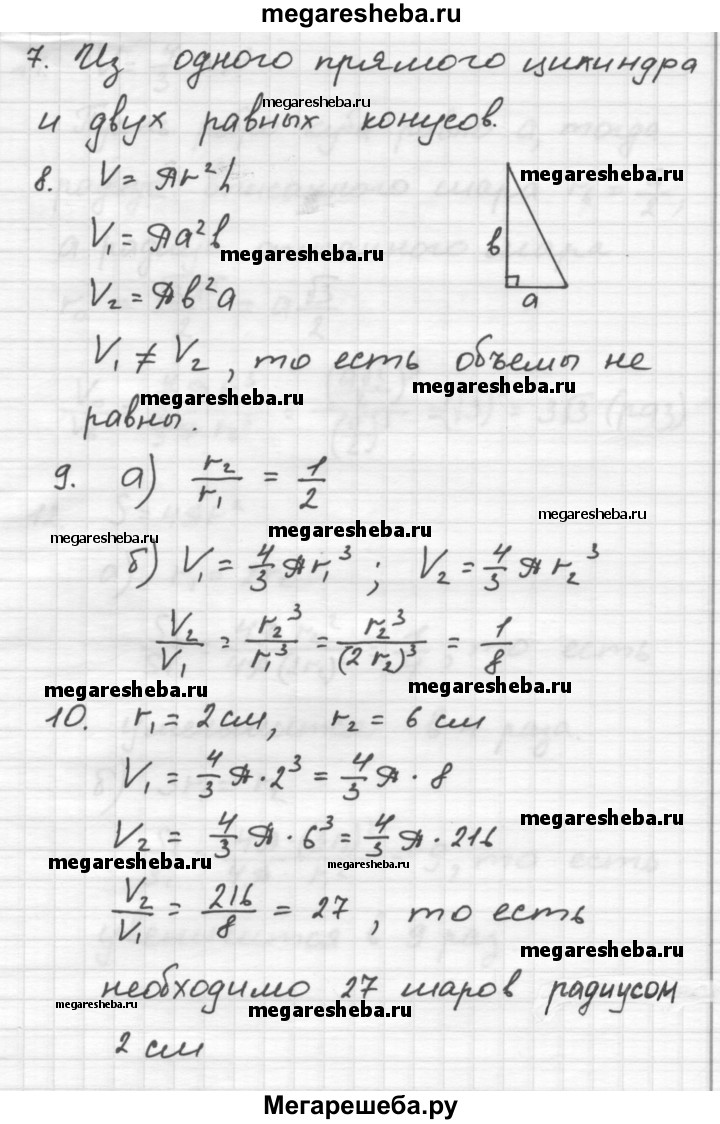 megaresheba.ru
7. Из одного прямого цилиндра
megaresheba.ru
и двух равных конусов.
8. V = πr²h
megaresheba.ru
V₁ = πa²b
megaresheba.ru
V₂ = πb²a
в
a
V₁ ≠ V₂, то есть объемы не
megaresheba.ru
megaresheba.ru
равны.
9. а) r₂/r₁ = 1/2
megaresheba.ru
megaresheba.ru
megaresheba.ru
б) V₁ = 4/3 πr₁³ ; V₂ = 4/3 π r₂³
V₂/V₁ = r₂³/r₁³ = r₂³/(2 r₂)³ = 1/8
megaresheba.ru
megaresheba.ru
10. r₁ = 2 см, r₂ = 6 см
V₁ = 4/3 π · 2³ = 4/3 π · 8
megaresheba.ru
V₂ = 4/3 π · 6³ = 4/3 π · 216
megaresheba.ru
megaresheba.ru
V₂/V₁ = 216/8 = 27, то есть
megaresheba.ru
необходимо 27 шаров радиусом
megaresheba.ru
megaresheba.ru
megaresheba.ru
2 см
Мегарешеба.ру